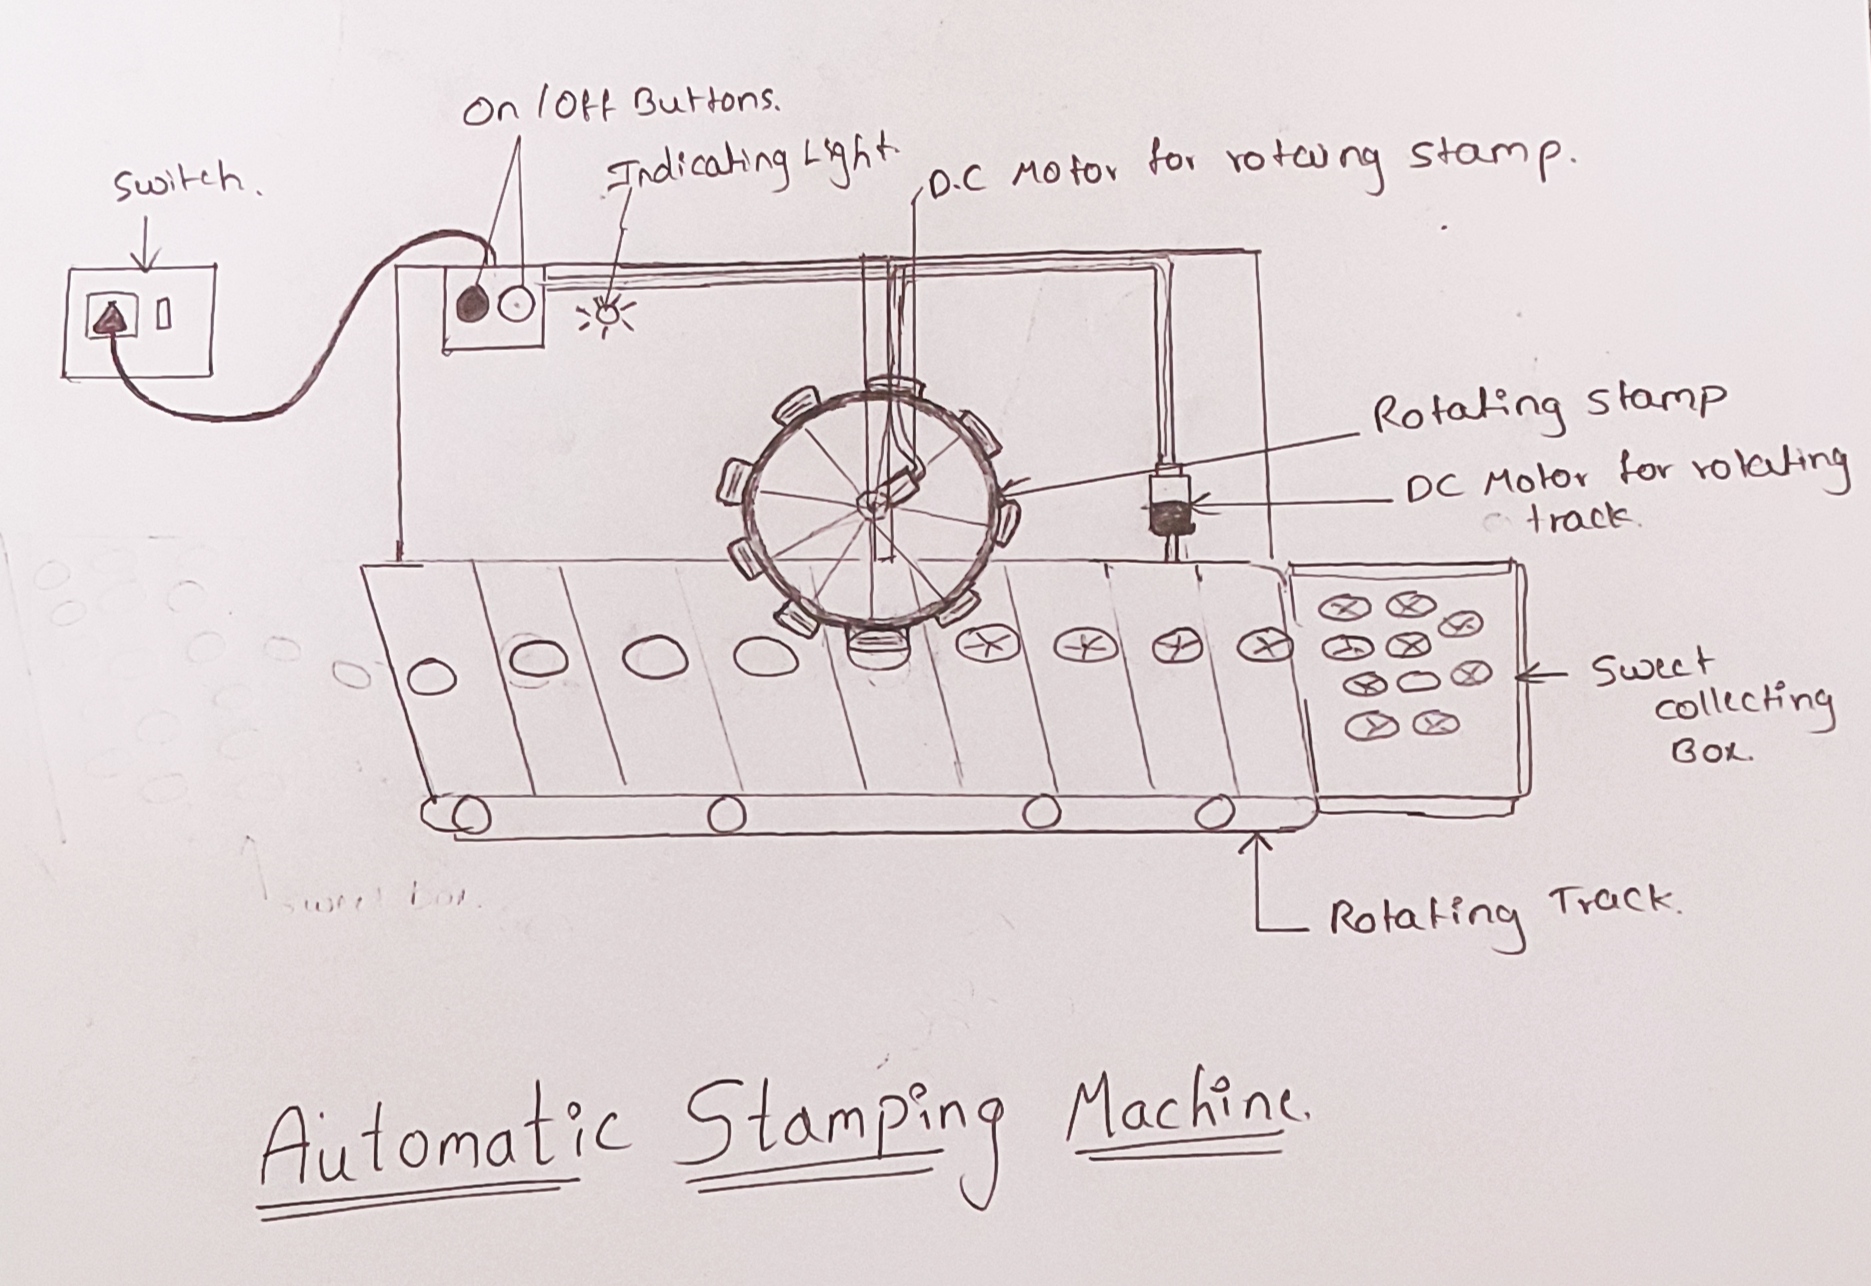 On / Off Buttons.
Switch.
Indicating Light
D.C Motor for rotating stamp.
Rotating stamp
DC Motor for rotating
track.
Sweet
collecting
Box.
Rotating Track.
sweet box.
Automatic Stamping Machine.